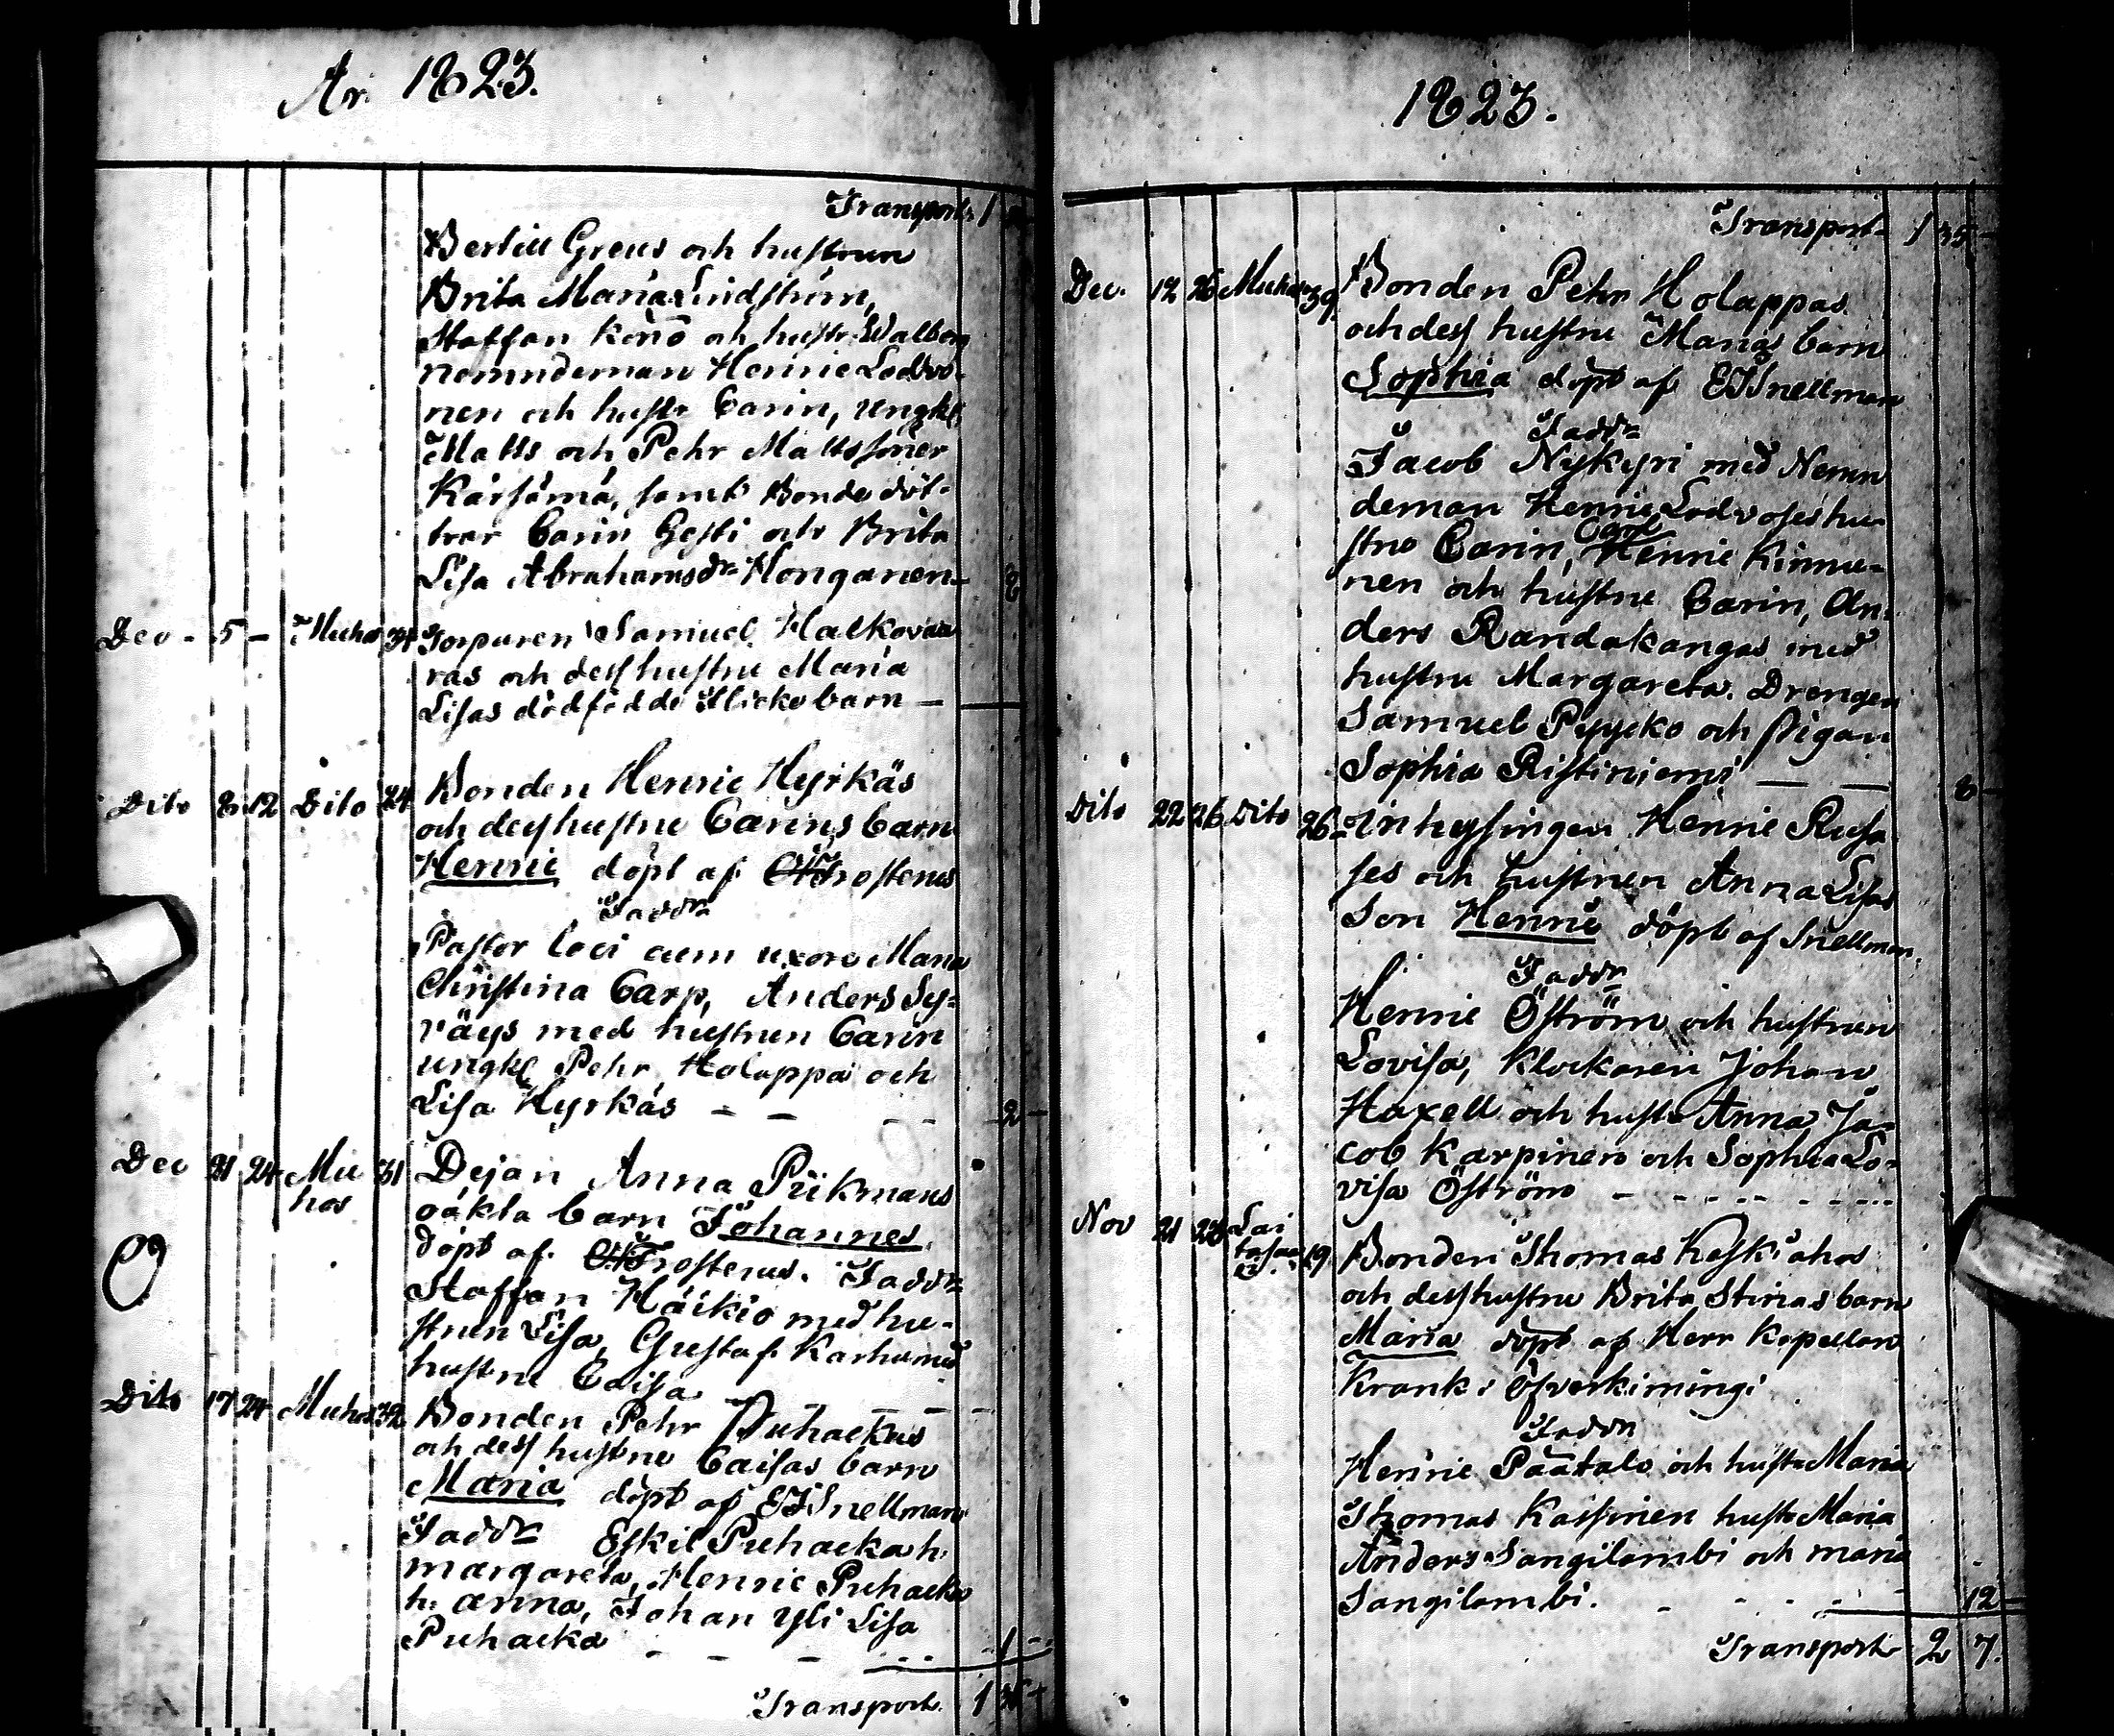 År 1823.
Transport 1
Bertill Greus och hustrun
Brita Maria Lindström,
Staffan Keno och hustr. Walborg
nemndeman Henric Lodvo-
nen och hustr Carin, ungkl
Matts och Pehr Mattssöner
Kärsämä, samt Bonde döt-
trar Carin Gesti och Brita
Lisa Abrahamsdr Honganen 8
Dec - 5 - Muhos 34 Torparen Samuel Halkovaa
ras och dess hustru Maria
Lisas dödfödde Flickebarn —
Dito 8 12 Dito 24 Bonden Henric Hyrkäs
och dess hustru Carins barn
Henric döpt af Frosterus
Faddr
Pastor loci cum uxore Maria
Christina Carp, Anders Sy-
väys med hustrun Carin
ungkl Pehr Holappa och
Lisa Hyrkäs - - - - 2 -
Dec 21 24 Mu
hos 31 Dejan Anna Piikmans
oäkta barn Johannes
döpt af Frosterus. Faddr
Staffan Häikiö med hu-
strun Lisa, Gustaf Karhu med
hustru Caisa
Dito 17 24 Muhos 32 Bonden Pehr Puhackas
och dess hustru Caisas barn
Maria döpt af EJSnellman
Faddr Eskil Puhacka h.
margareta, Henric Puhacka
h. anna, Johan Yli Lisa
Puhacka - - - 1 -
Transport 1
1823.
Transport 1 35 -
Dec. 12 26 Muhos 39 Bonden Pehr Holappas
och dess hustru Marias barn
Sophia döpt af EJSnellman
Faddr
Jacob Nykyri med Nemn
deman Henric Lodvoses hu-
stru Carin, Carl Henric Kinnu-
nen och hustru Carin, An-
ders Randakangas med
hustru Margareta. Drengen
Samuel Pyycko och Pigan
Sophia Ristiniemi — — 8 -
Dito 22 26 Dito 26 Inhysingen Henric Rusa
ses och hustrun Anna Lisas
Son Henric döpt af Snellman
Faddr
Henric Öström och hustrun
Lovisa, Klockaren Johan
Haxell och hustr Anna Ja-
cob Karpinen och Sophia Lo-
visa Öström - - - - -
Nov 21 23 Bonden Thomas Keskiahos
19
och dess hustru Brita Stinas barn
Maria döpt af Herr Kapellan
Krank i Öfverkiming:
Faddr
Henric Päätalo och hustr Maria
Thomas Kassinen hustr Maria
Anders Sangilambi och maria
Sangilambi. - - - - 12 -
Transport 2 7.